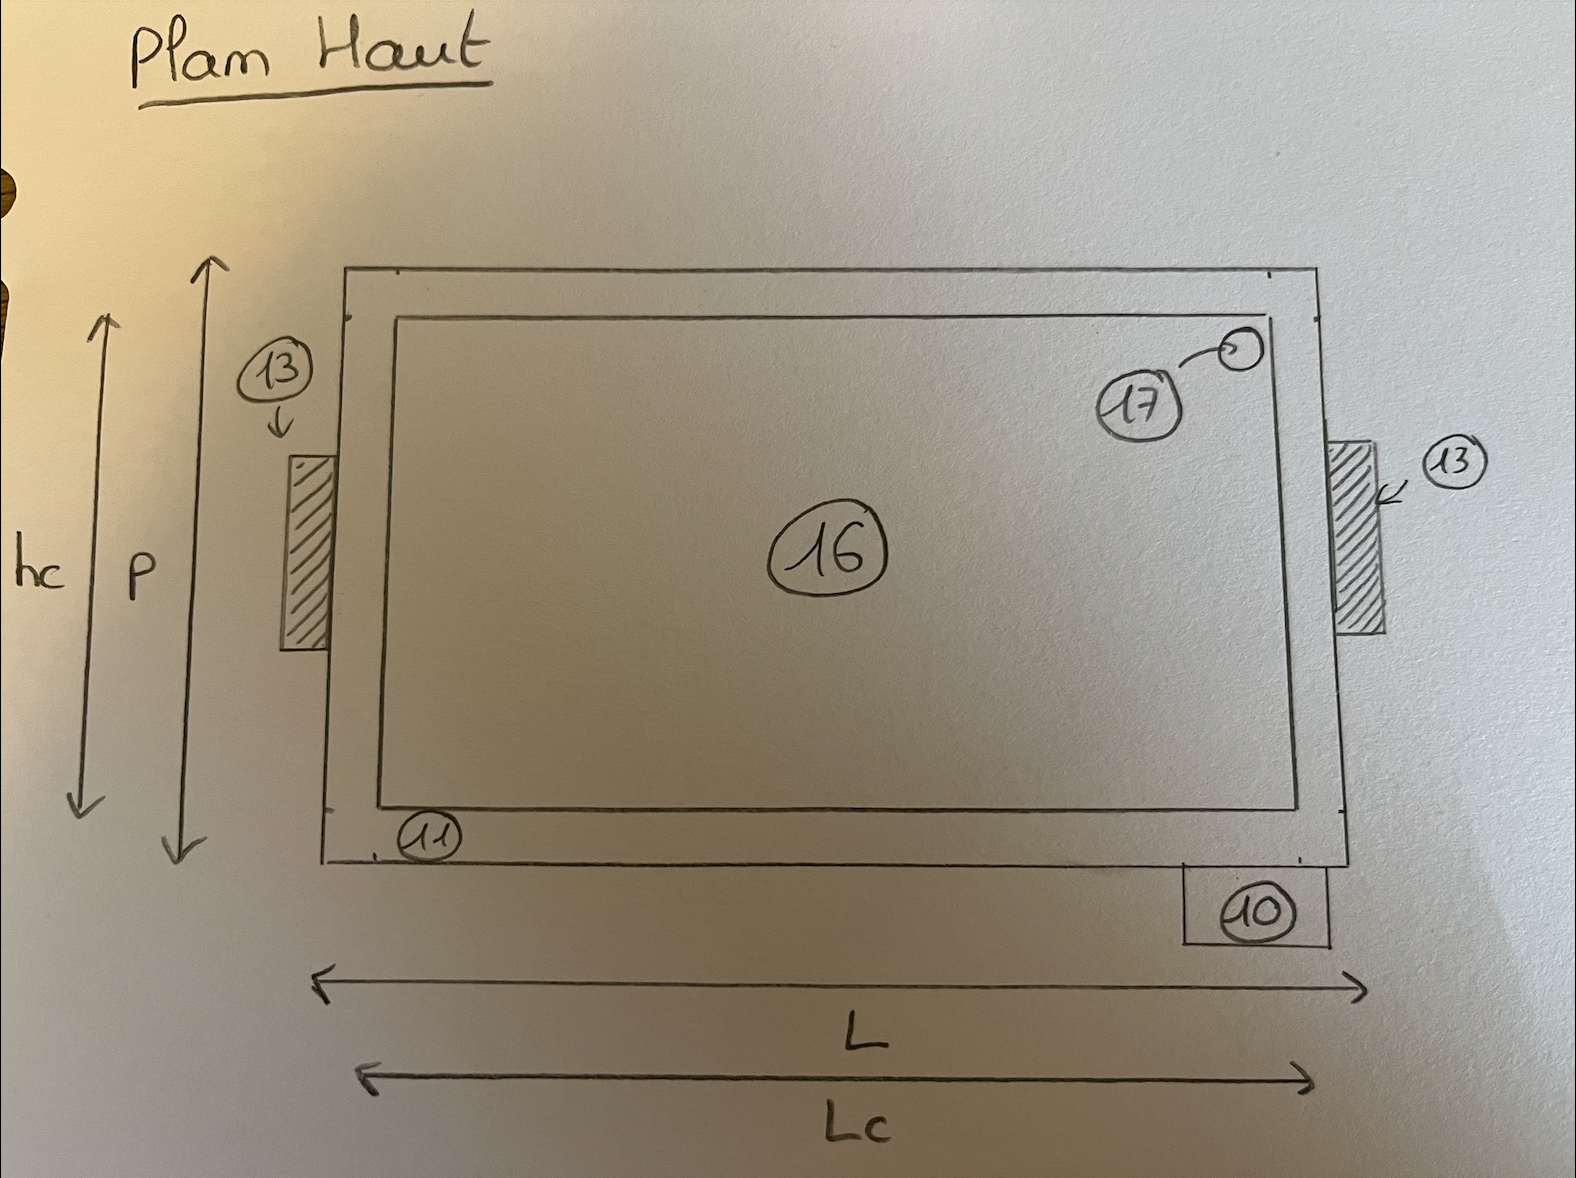 Plan Haut
13
17
13
16
hc
P
11
10
L
Lc